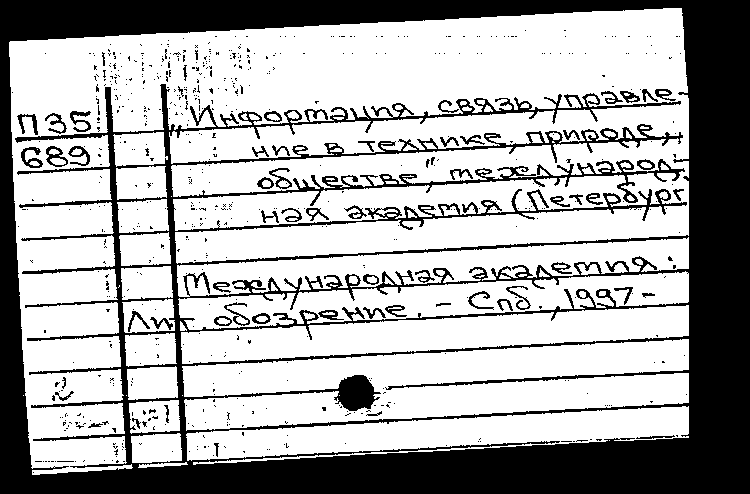 П35 "Информация, связь, управле-
689 ние в технике, природе,
обществе", международ-
ная академия (Петербург
Международная академия:
Лит. обозрение. - Спб., 1997-
2